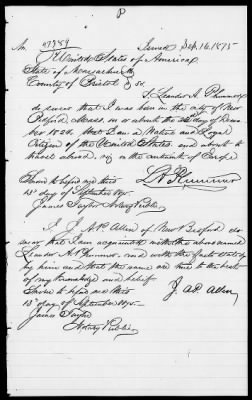 P
No. 47789 Issued Sep. 16. 1875
United States of America
State of Massachusetts
County of Bristol ss.
I, Leander A. Plummer
do swear that I was born in the city of New
Bedford, Mass. on or about the day of Decem
ber 1824, that I am a Native and Loyal
Citizen of the United States and about to
travel abroad, on the continent of Europe
Sworn to before me this L A Plummer
15th day of September 1875.
James Taylor Notary Public
I, J. A. P. Allen of New Bedford do
swear that I am acquainted with the above named
Leander A. Plummer and with the facts stated
by him and that the same are true to the best
of my knowledge and belief
Sworn to before me this J. A. P. Allen
15th day of September 1875
James Taylor
Notary Public